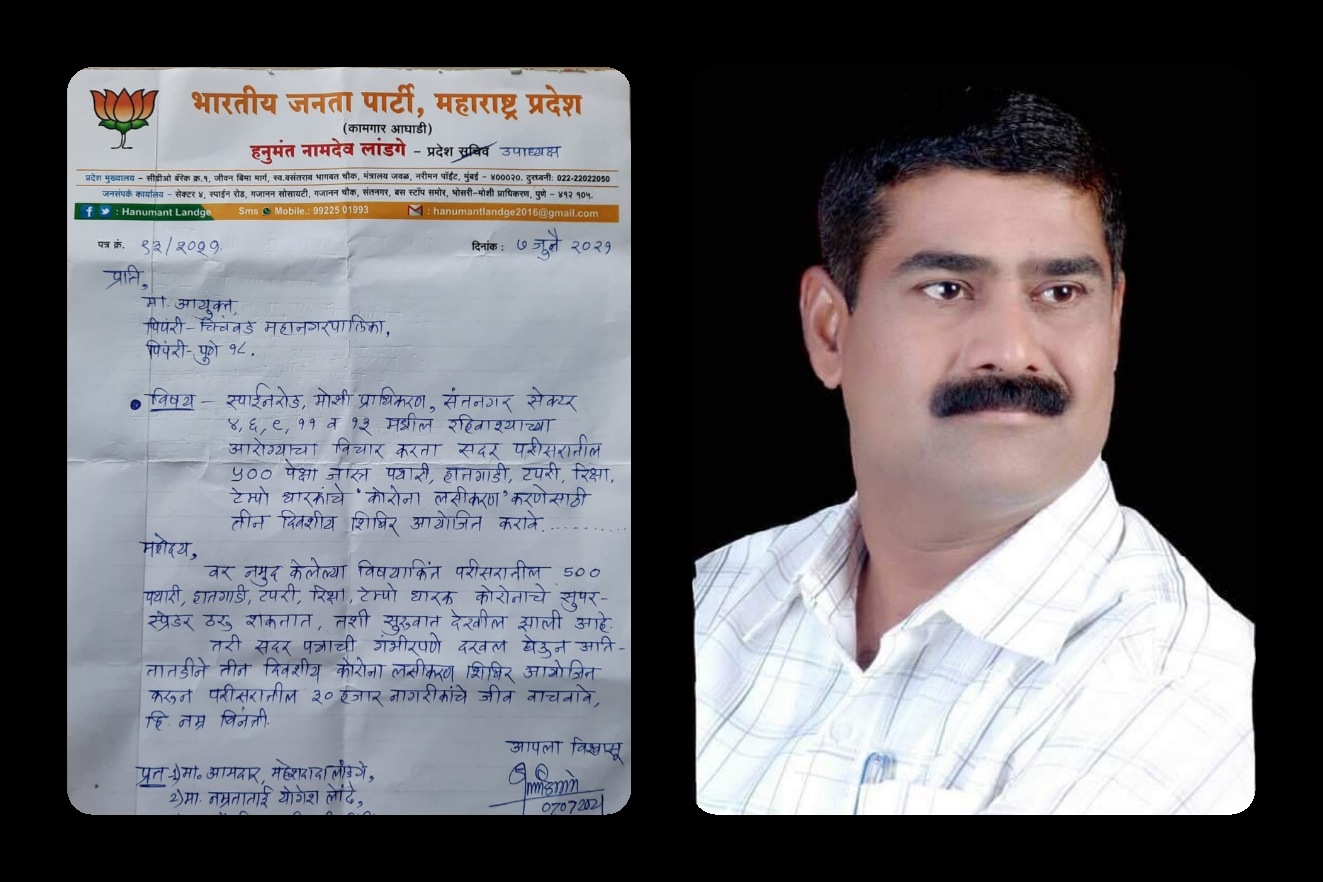 भारतीय जनता पार्टी, महाराष्ट्र प्रदेश
(कामगार आघाडी)
हनुमंत नामदेव लांडगे - प्रदेश सचिव उपाध्यक्ष
प्रदेश मुख्यालय – सीडीओ बॅरेक क्र.१, जीवन बिमा मार्ग, स्व.वसंतराव भागवत चौक, मंत्रालय जवळ, नरीमन पॉईंट, मुंबई - ४०००२०. दुरध्वनी: 022-22022050
जनसंपर्क कार्यालय – सेक्टर ४, स्पाईन रोड, गजानन सोसायटी, गजानन चौक, संतनगर, बस स्टॉप समोर, भोसरी-मोशी प्राधिकरण, पुणे – ४१२ १०५.
: Hanumant Landge Sms Mobile.: 99225 01993 : hanumantlandge2016@gmail.com
पत्र क्रं. ९३/२०२१. दिनांक : ७ जुलै २०२१
प्रति,
मा. आयुक्त,
पिंपरी-चिंचवड महानगरपालिका,
पिंपरी-पुणे १८.
विषय - स्पाईनरोड, मोशी प्राधिकरण, संतनगर सेक्टर
४,६,९,११ व १३ मधील रहिवाश्याच्या
आरोग्याचा विचार करता सदर परीसरातील
५०० पेक्षा जास्त पथारी, हातगाडी, टपरी, रिक्षा,
टेम्पो धारकांचे 'कोरोना लसीकरण' करणेसाठी
तीन दिवशीय शिबिर आयोजित करावे..........
महोदय,
वर नमुद केलेल्या विषयांकित परीसरातील 500
पथारी, हातगाडी, टपरी, रिक्षा, टेम्पो धारक कोरोनाचे सुपर-
स्प्रेडर ठरू शकतात, तशी सुरुवात देखील झाली आहे.
तरी सदर पत्राची गंभीरपणे दखल घेऊन अति-
तातडीने तीन दिवशीय कोरोना लसीकरण शिबिर आयोजित
करून परीसरातील ३० हजार नागरीकांचे जीव वाचवावे,
हि नम्र विनंती.
आपला विश्वासू
प्रत-१)मा. आमदार, महेशदादा लांडगे,
२)मा. नम्रताताई योगेश लोंढे,
07072021